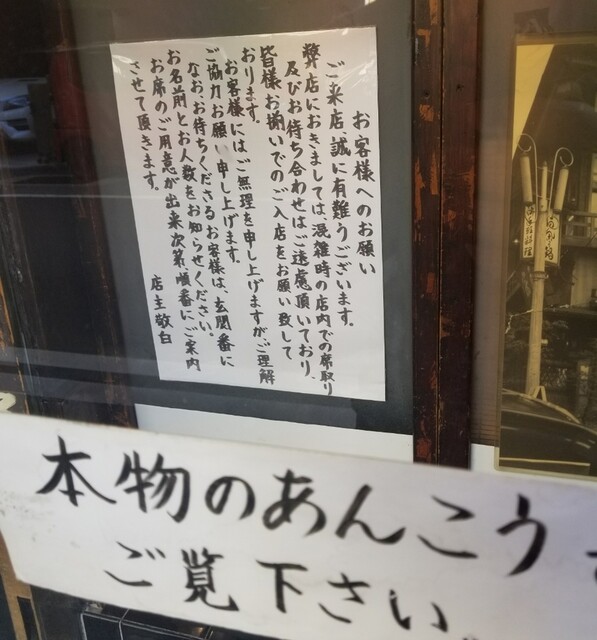 お客様へのお願い
ご来店、誠に有難うございます。
弊店におきましては、混雑時の店内での席取り
及びお待ち合わせはご遠慮頂いており、
皆様お揃いでのご入店をお願い致して
おります。
お客様にはご無理を申し上げますがご理解
ご協力お願い申し上げます。
なお、お待ちくださるお客様は、玄関番に
お名前とお人数をお知らせください。
お席のご用意が出来次第、順番にご案内
させて頂きます。
店主敬白
本物のあんこう
ご覧下さい。